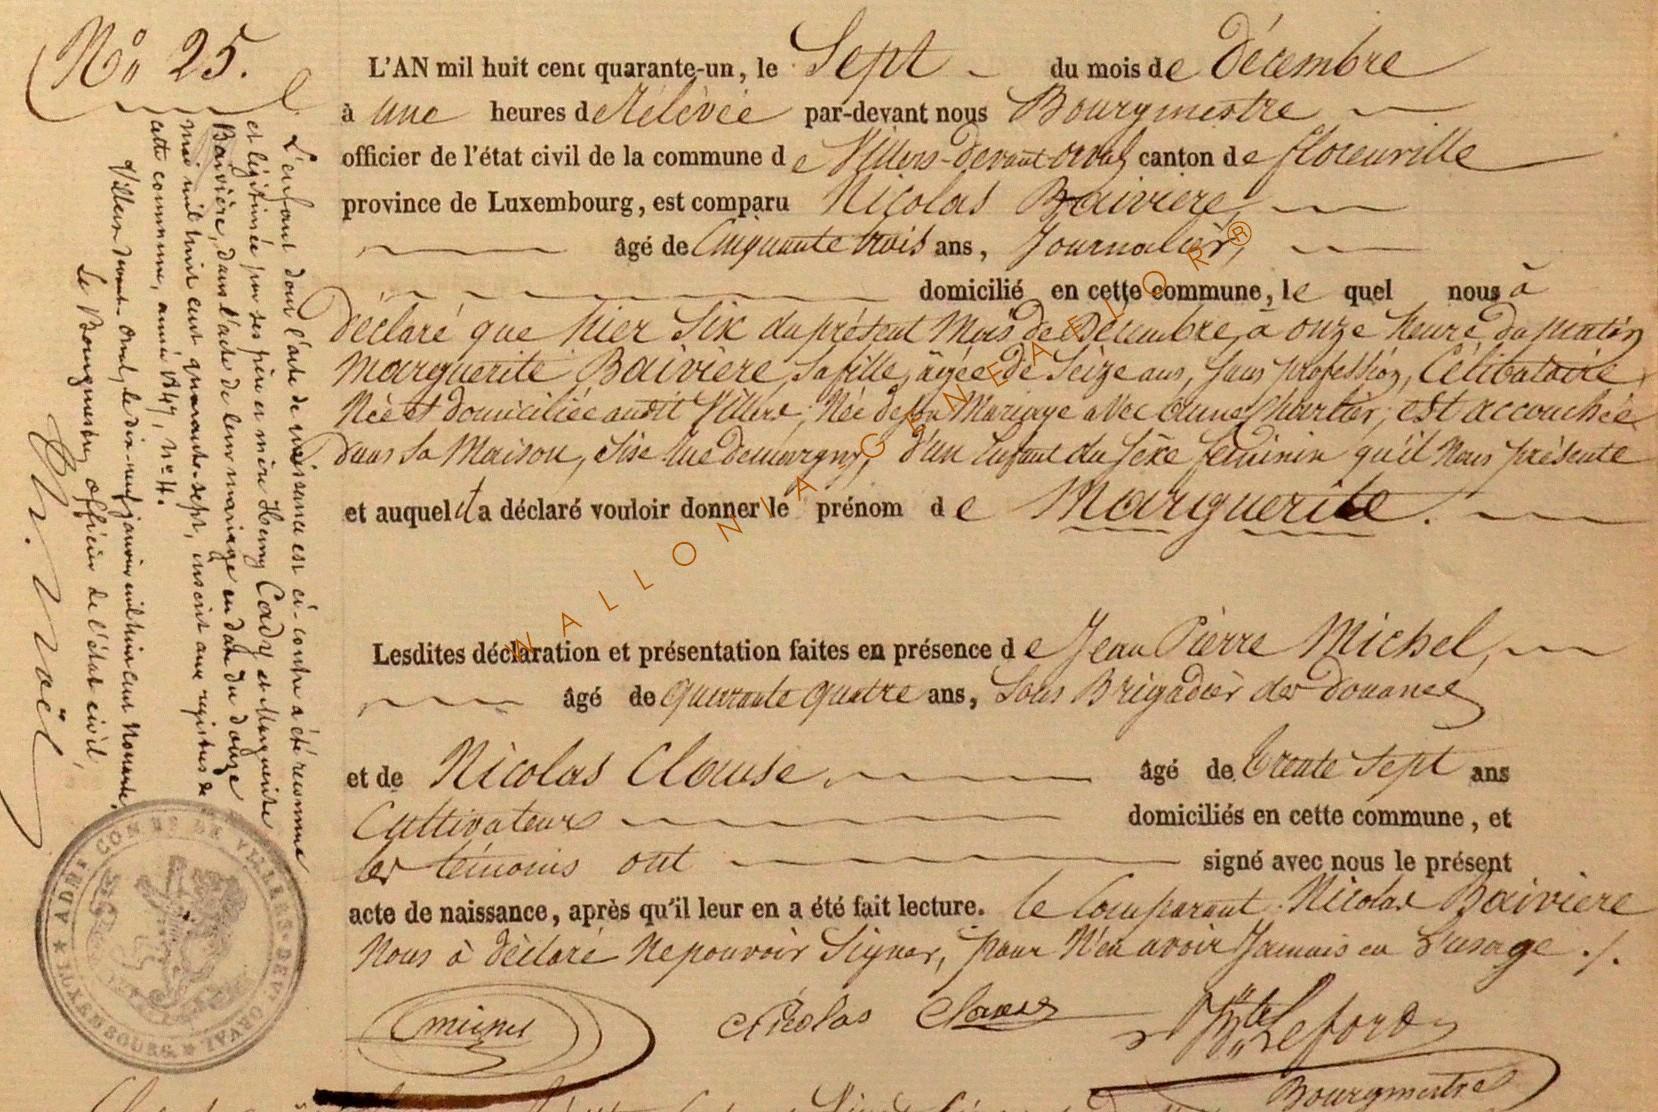 No 25.
L'AN mil huit cent quarante-un, le Sept du mois de Décembre
à une heures de Rélévée par-devant nous Bourgmestre
officier de l'état civil de la commune de Villers-devant-orval canton de florenville
province de Luxembourg, est comparu Nicolas Baiviere,
âgé de Cinquante trois ans, Journalier,
domicilié en cette commune, le quel nous à
déclaré que hier Six du présent Mois de Décembre, à onze heure du matin
Marguerite Baiviere, sa fille, âgée de Seize ans, sans profession, Célibataire,
Née et domiciliée audit Villers, Née de son Mariage avec Chartier, est accouchée
dans sa Maison, sise d'un Enfant du sèxe féminin qu'il Nous présente
et auquel il a déclaré vouloir donner le prénom de Marguerite.
Lesdites déclaration et présentation faites en présence de Jean Pierre Michel,
âgé de quarante quatre ans, Sous Brigadier des Douanes
et de Nicolas Clause, âgé de trente Sept ans
Cultivateur domiciliés en cette commune, et
les témoins ont signé avec nous le présent
acte de naissance, après qu'il leur en a été fait lecture. le Comparant Nicolas Baiviere
Nous à déclaré Ne pouvoir Signer, pour N'en avoir Jamais eu L'usage ./.
Nicolas Clause
Lefort
Bourgmestre
L'enfant dont l'acte de naissance est ci-contre a été reconnue
et légitimée par ses père et mère Henry Cady et Marguerite
Baivière, dans l'acte de leur mariage en date du douze
mai mil huit cent quarante-sept, inscrit aux registres de
cette commune, année 1847, no 4.
Villers devant Orval, le dix-neuf janvier mil huit cent Nonante.
Le Bourgmestre, officier de l'état civil,
Noël
ADMI COMLE DE VILLERS-DEVT ORVAL
LUXEMBOURG
WALLONIA GENEALOR®